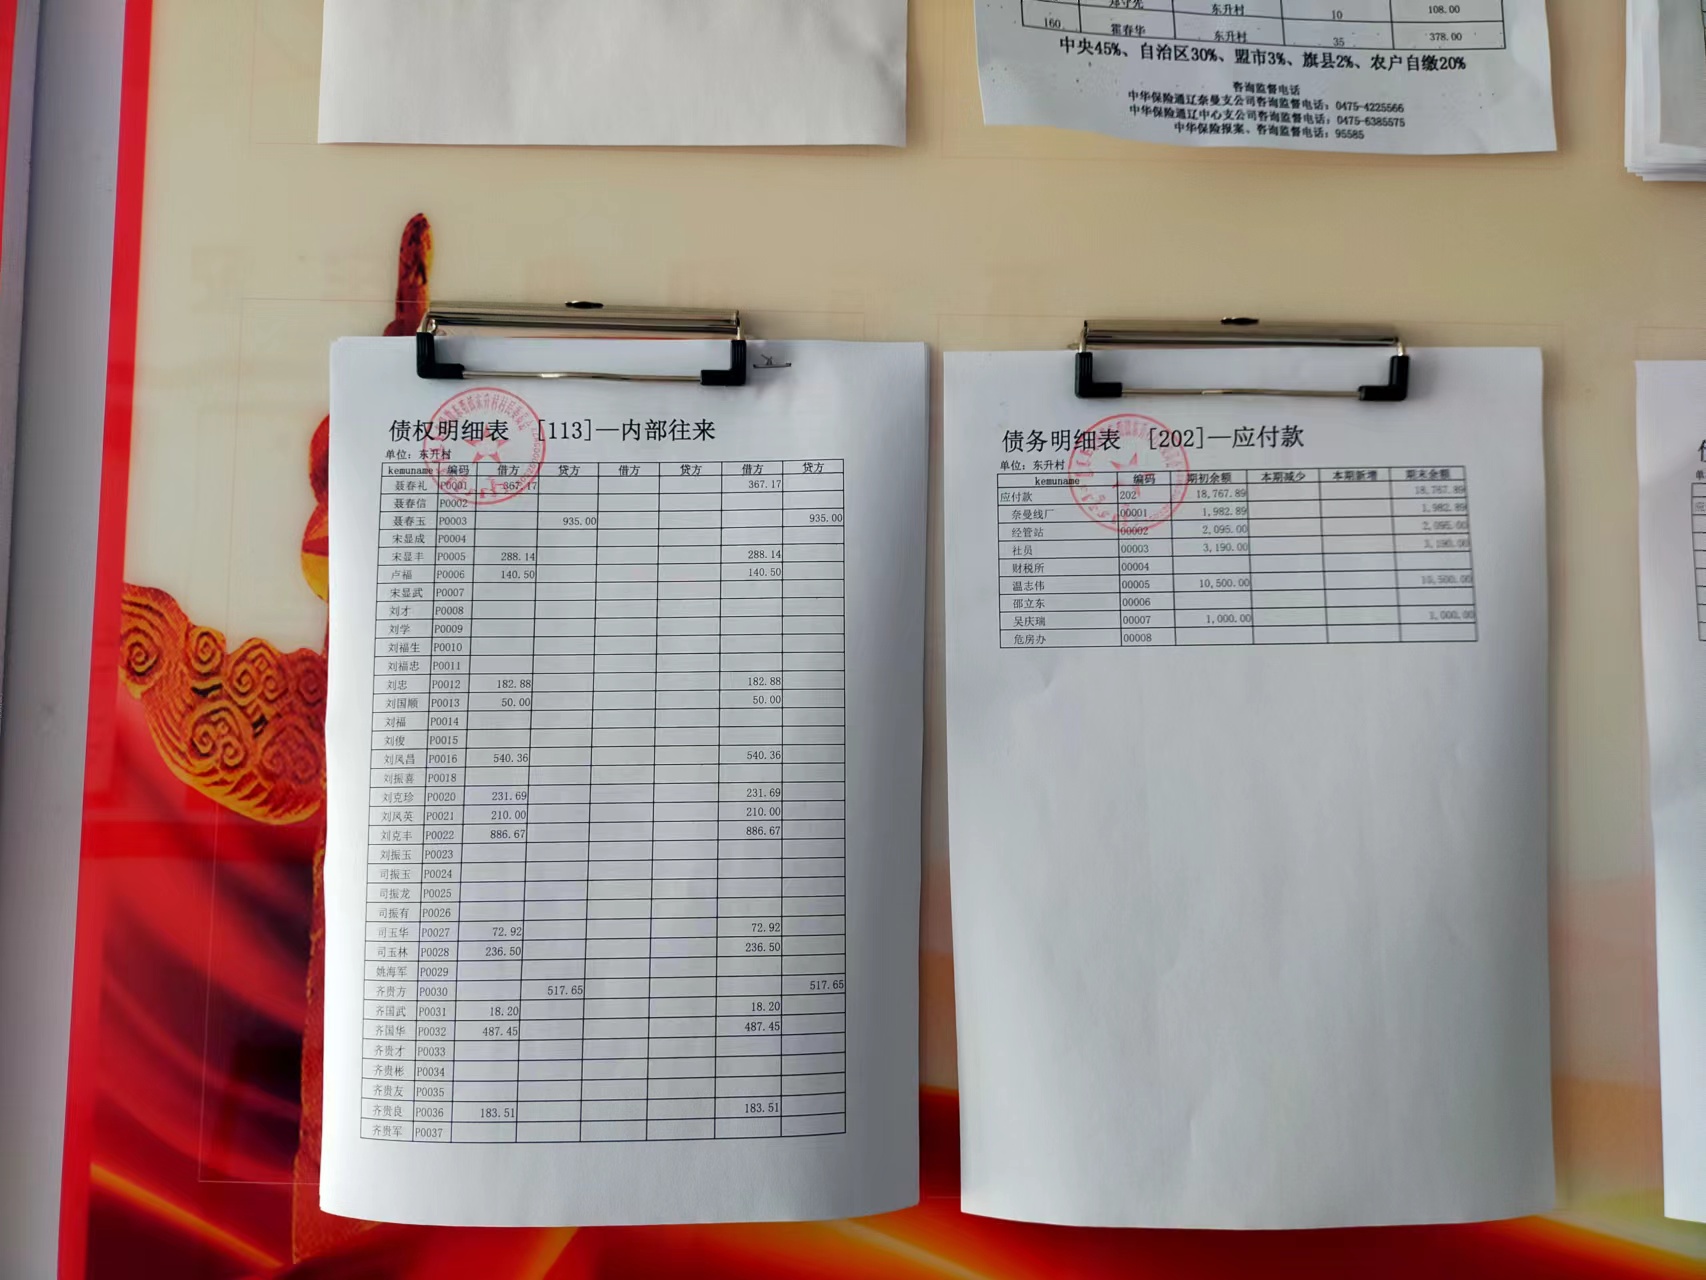 郑守先 东升村 10 108.00
160 霍春华 东升村 35 378.00
中央45%、自治区30%、盟市3%、旗县2%、农户自缴20%
咨询监督电话
中华保险通辽奈曼支公司咨询监督电话：0475-4225566
中华保险通辽中心支公司咨询监督电话：0475-6385575
中华保险报案、咨询监督电话：95585
债权明细表 [113]—内部往来
单位：东升村
kemuname 编码 借方 贷方 借方 贷方 借方 贷方
聂春礼 P0001 367.17 367.17
聂春信 P0002
聂春玉 P0003 935.00 935.00
宋显成 P0004
宋显丰 P0005 288.14 288.14
卢福 P0006 140.50 140.50
宋显武 P0007
刘才 P0008
刘学 P0009
刘福生 P0010
刘福忠 P0011
刘忠 P0012 182.88 182.88
刘国顺 P0013 50.00 50.00
刘福 P0014
刘俊 P0015
刘凤昌 P0016 540.36 540.36
刘振喜 P0018
刘克珍 P0020 231.69 231.69
刘凤英 P0021 210.00 210.00
刘克丰 P0022 886.67 886.67
刘振玉 P0023
司振玉 P0024
司振龙 P0025
司振有 P0026
司玉华 P0027 72.92 72.92
司玉林 P0028 236.50 236.50
姚海军 P0029
齐贵方 P0030 517.65 517.65
齐国武 P0031 18.20 18.20
齐国华 P0032 487.45 487.45
齐贵才 P0033
齐贵彬 P0034
齐贵友 P0035
齐贵良 P0036 183.51 183.51
齐贵军 P0037
债务明细表 [202]—应付款
单位：东升村
kemuname 编码 期初余额 本期减少 本期新增 期末余额
应付款 202 18,767.89 18,767.89
奈曼线厂 00001 1,982.89 1,982.89
经管站 00002 2,095.00 2,095.00
社员 00003 3,190.00 3,190.00
财税所 00004
温志伟 00005 10,500.00 10,500.00
邵立东 00006
吴庆瑞 00007 1,000.00 1,000.00
危房办 00008